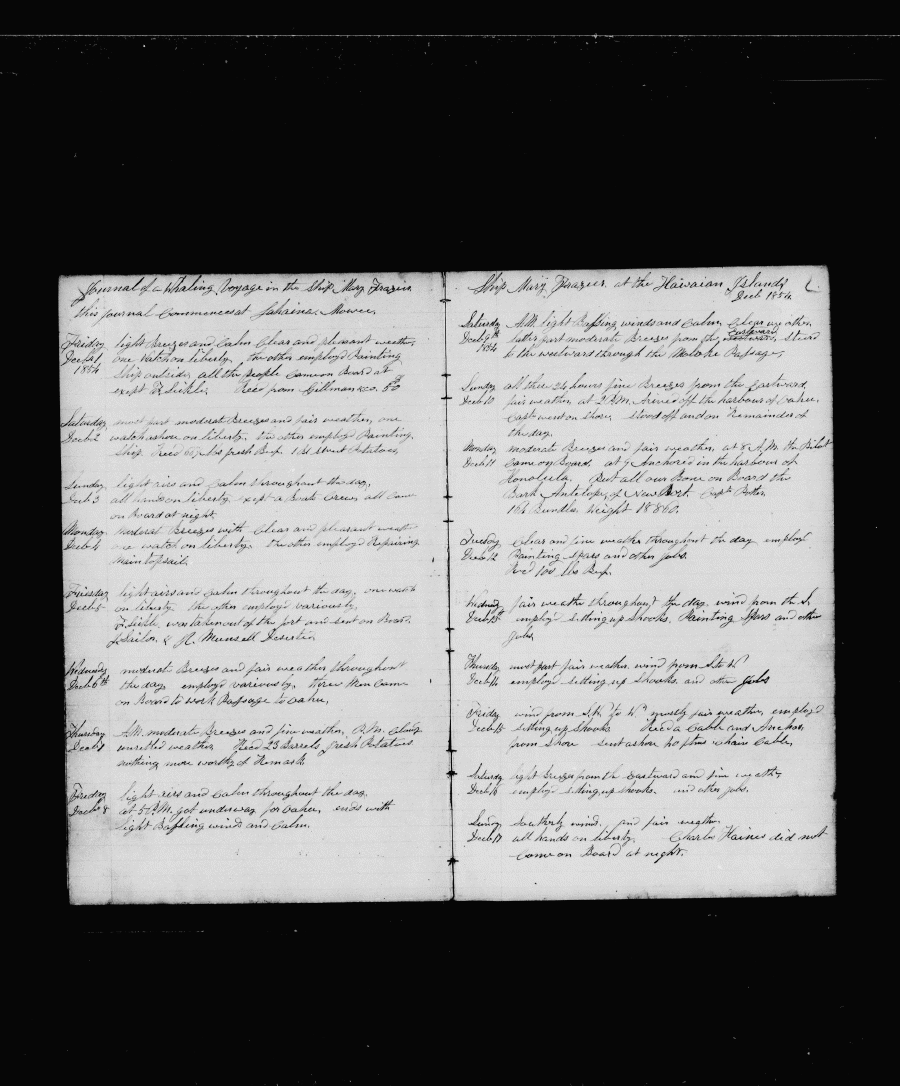 Journal of a Whaling Voyage in the Ship Mary Frazier
this journal Commences at Lahaina. Mowee,
Friday light Breezes and Calm Clear and pleasant weather,
Decbr 1 one watch on liberty, the other employd Painting
1854 Ship outside, all the people Came on Board at
exept F. Sickle. Recd from Gillman &co.
Saturday most part moderat Breezes and fair weather, one
Decbr 2 watch ashore on liberty, the other employd Painting
Ship. Recd lbs fresh Beef. 1 Potatoes,
Sunday light airs and Calm throughout the day,
Decb 3 all hands on liberty exept a Boats Crew, all Came
on Board at night.
Monday moderat Breezes with Clear and pleasant weath
Decbr 4 one watch on liberty. the other employd Repairing
main topsail.
Tuesday light airs and Calm throughout the day, one watch
Decbr 5 on liberty the other employd variously,
F. Sickle was taken out of the fort and sent on Board.
& R. Munsell Deserted
Wednesday moderate Breezes and fair weather throughout
Decbr 6th the day employd variously, three Men Came
on Board to work Passage to Oahu,
Thursday A.M. moderate Breezes and fine weather, P.M. Cloudy
Decbr 7 unsettled weather Recd 23 Barrels fresh Potatoes
nothing more worthy of Remark
Friday light airs and Calm throughout the day.
Decbr 8 at 5 P.M. got underway for Oahu, ends with
light Baffling winds and Calm.
Ship Mary Frazier, at the Hawaian Islands
Decb 1854
Saturday A.M. light Baffling winds and Calm, Clear weather,
Eastward
Decbr 9th latter part moderate Breezes from the, Steerd
1854 to the westward through the Moloke Passage,
Sunday all these 24 hours fine Breezes from the Eastward,
Decbr 10 fair weather, at 2 P.M. Arived off the harbour of Oahu,
Capt went on shore. Stood off and on Remainder of
the day.
Monday moderate Breezes and fair weather, at 8 A.M. the Pilot
Decbr 11 Came on Board. at 9 Anchored in the harbour of
Honolulu. Put all our Bone on Board the
Bark Antelope, of New Port. Capt Potter.
164 Bundles Weight 18860.
Tuesday Clear and fine weather throughout the day employd
Decbr 12 Painting Spars and other jobs.
Recd 100 lbs Beef.
Wednesday fair weather throughout the day. wind from the S,
Decbr 13th employd setting up Shooks, Painting Spars and other
jobs,
Thursday most part fair weather, wind from S. to W
Decbr 14 employd setting up shooks. and other Jobs
Friday wind from S.W. to W mostly fair weather, employd
Decbr 15 setting up Shooks Recd a Cable and Anchor,
from Shore sent ashore Chain Cable,
Saturday light breezes from the Eastward and fine weather
Decbr 16 employd setting up shooks. and other jobs.
Sunday Southerly wind. and fair weather.
Decbr 17 all hands on liberty. Charles Haines did not
Come on Board at night.